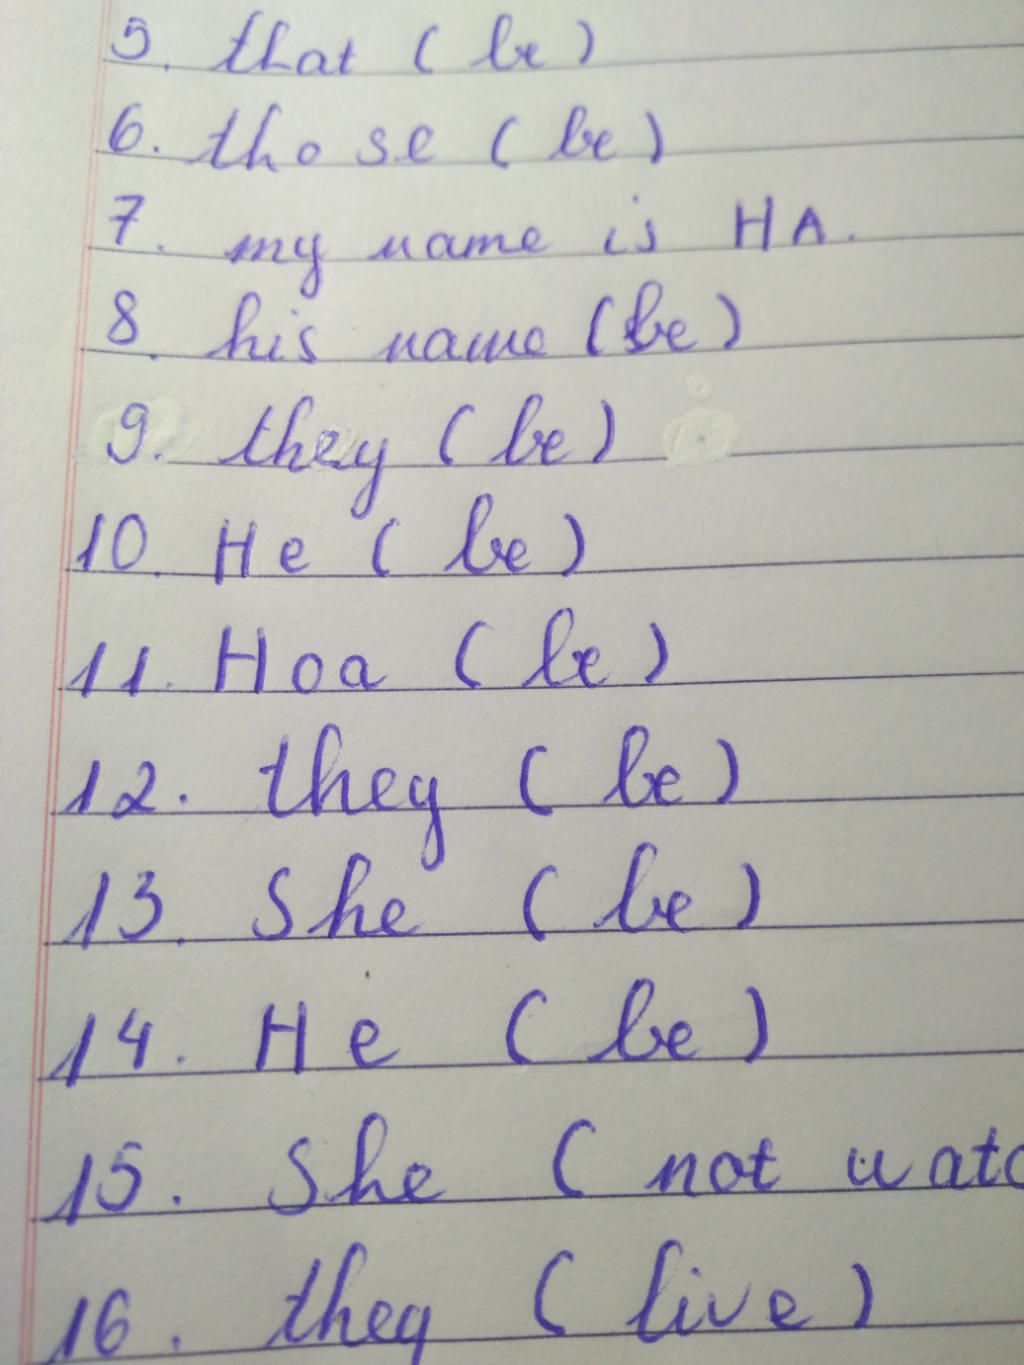 5. that ( be )
6. those ( be )
7. my name is HA.
8. his name (be)
9. they (be)
10. He ( be )
11. Hoa ( be )
12. they ( be )
13. She ( be )
14. He ( be )
15. She ( not
16. they ( live )